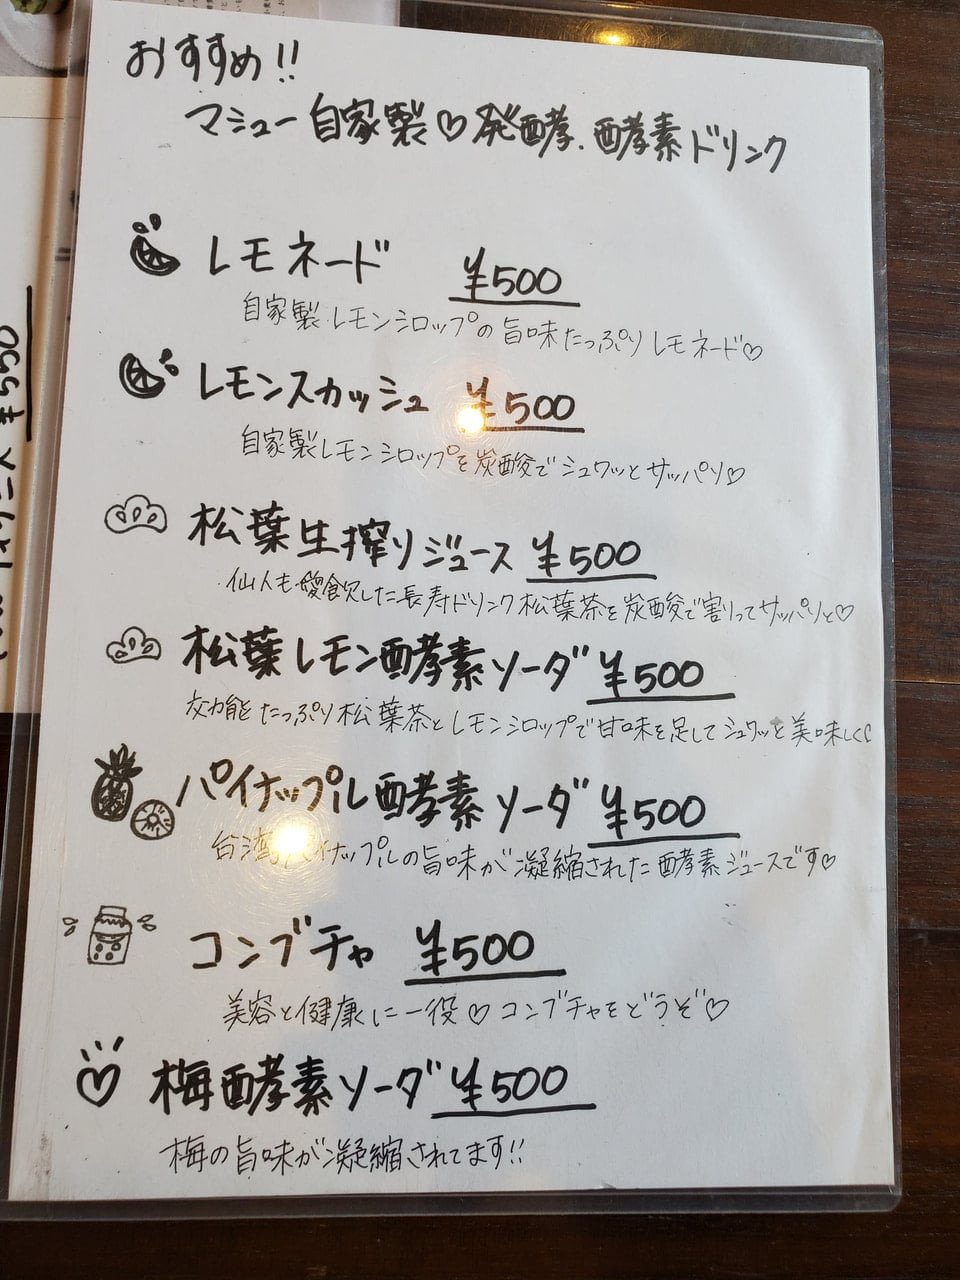 おすすめ!!
マシュー自家製♡発酵.酵素ドリンク
レモネード ¥500
自家製レモンシロップの旨味たっぷりレモネード♡
レモンスカッシュ ¥500
自家製レモンシロップを炭酸でシュワッとサッパリ♡
松葉生搾りジュース ¥500
仙人も愛飲した長寿ドリンク松葉茶を炭酸で割ってサッパリと♡
松葉レモン酵素ソーダ ¥500
効能たっぷり松葉茶とレモンシロップで甘味を足してシュワッと美味しく
パイナップル酵素ソーダ ¥500
台湾パイナップルの旨味が凝縮された酵素ジュースです♡
コンブチャ ¥500
美容と健康に一役♡コンブチャをどうぞ♡
梅酵素ソーダ ¥500
梅の旨味が凝縮されてます!!
¥550